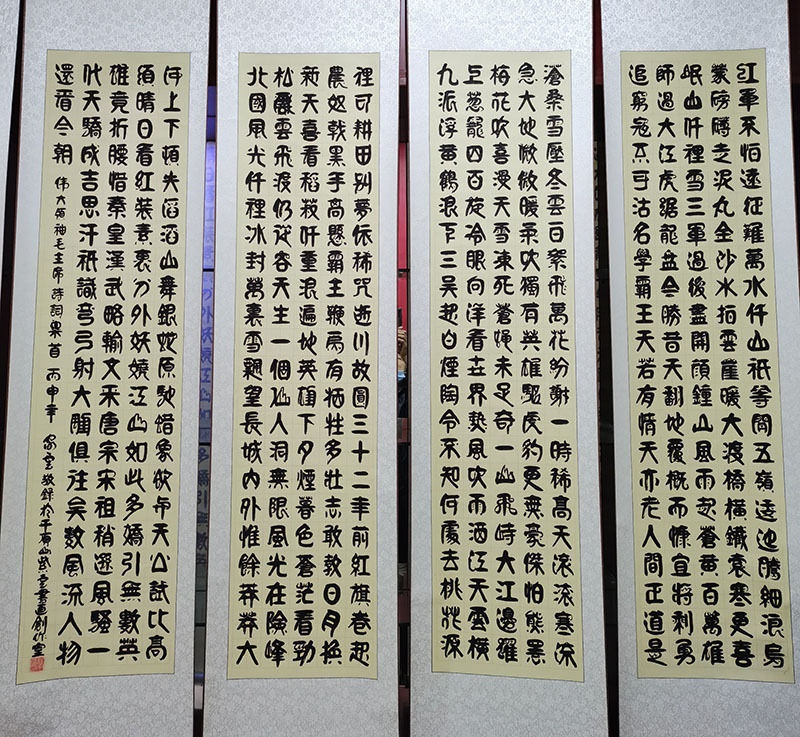 红軍不怕遠征難萬水仟山祇等閒五嶺逶迤騰細浪烏
蒙磅礴走泥丸金沙水拍雲崖暖大渡橋橫鐵索寒更喜
岷山仟裡雪三軍過後盡開顏鐘山風雨起蒼黃百萬雄
師過大江虎踞龍盤今勝昔天翻地覆慨而慷宜將剩勇
追窮寇不可沽名學霸王天若有情天亦老人間正道是
滄桑雪壓冬雲白絮飛萬花紛謝一時稀高天滾滾寒流
急大地微微暖氣吹獨有英雄驅虎豹更無豪傑怕熊羆
梅花吹喜漫天雪凍死蒼蠅未足奇一山飛峙大江邊躍
上蔥蘢四百旋冷眼向洋看世界熱風吹雨灑江天雲橫
九派浮黃鶴浪下三吳起白煙陶令不知何處去桃花源
裡可耕田别夢依稀咒逝川故園三十二年前紅旗卷起
農奴戟黑手高懸霸主鞭爲有犧牲多壯志敢教日月換
新天喜看稻菽仟重浪遍地英雄下夕煙暮色蒼茫看勁
松亂雲飛渡仍從容天生一個仙人洞無限風光在險峰
北國風光仟裡冰封萬裏雪飄望長城内外惟餘莽莽大
河上下頓失滔滔山舞銀蛇原馳蜡象欲與天公試比高
須晴日看紅装素裹分外妖嬈江山如此多嬌引無數英
雄竟折腰惜秦皇漢武略輸文采唐宗宋祖稍遜風騷一
代天驕成吉思汗祇識弯弓射大雕俱往矣数風流人物
還看今朝 伟大领袖毛主席詩詞 首 丙申年 雲敬錄於千 山紫雲書画創作室